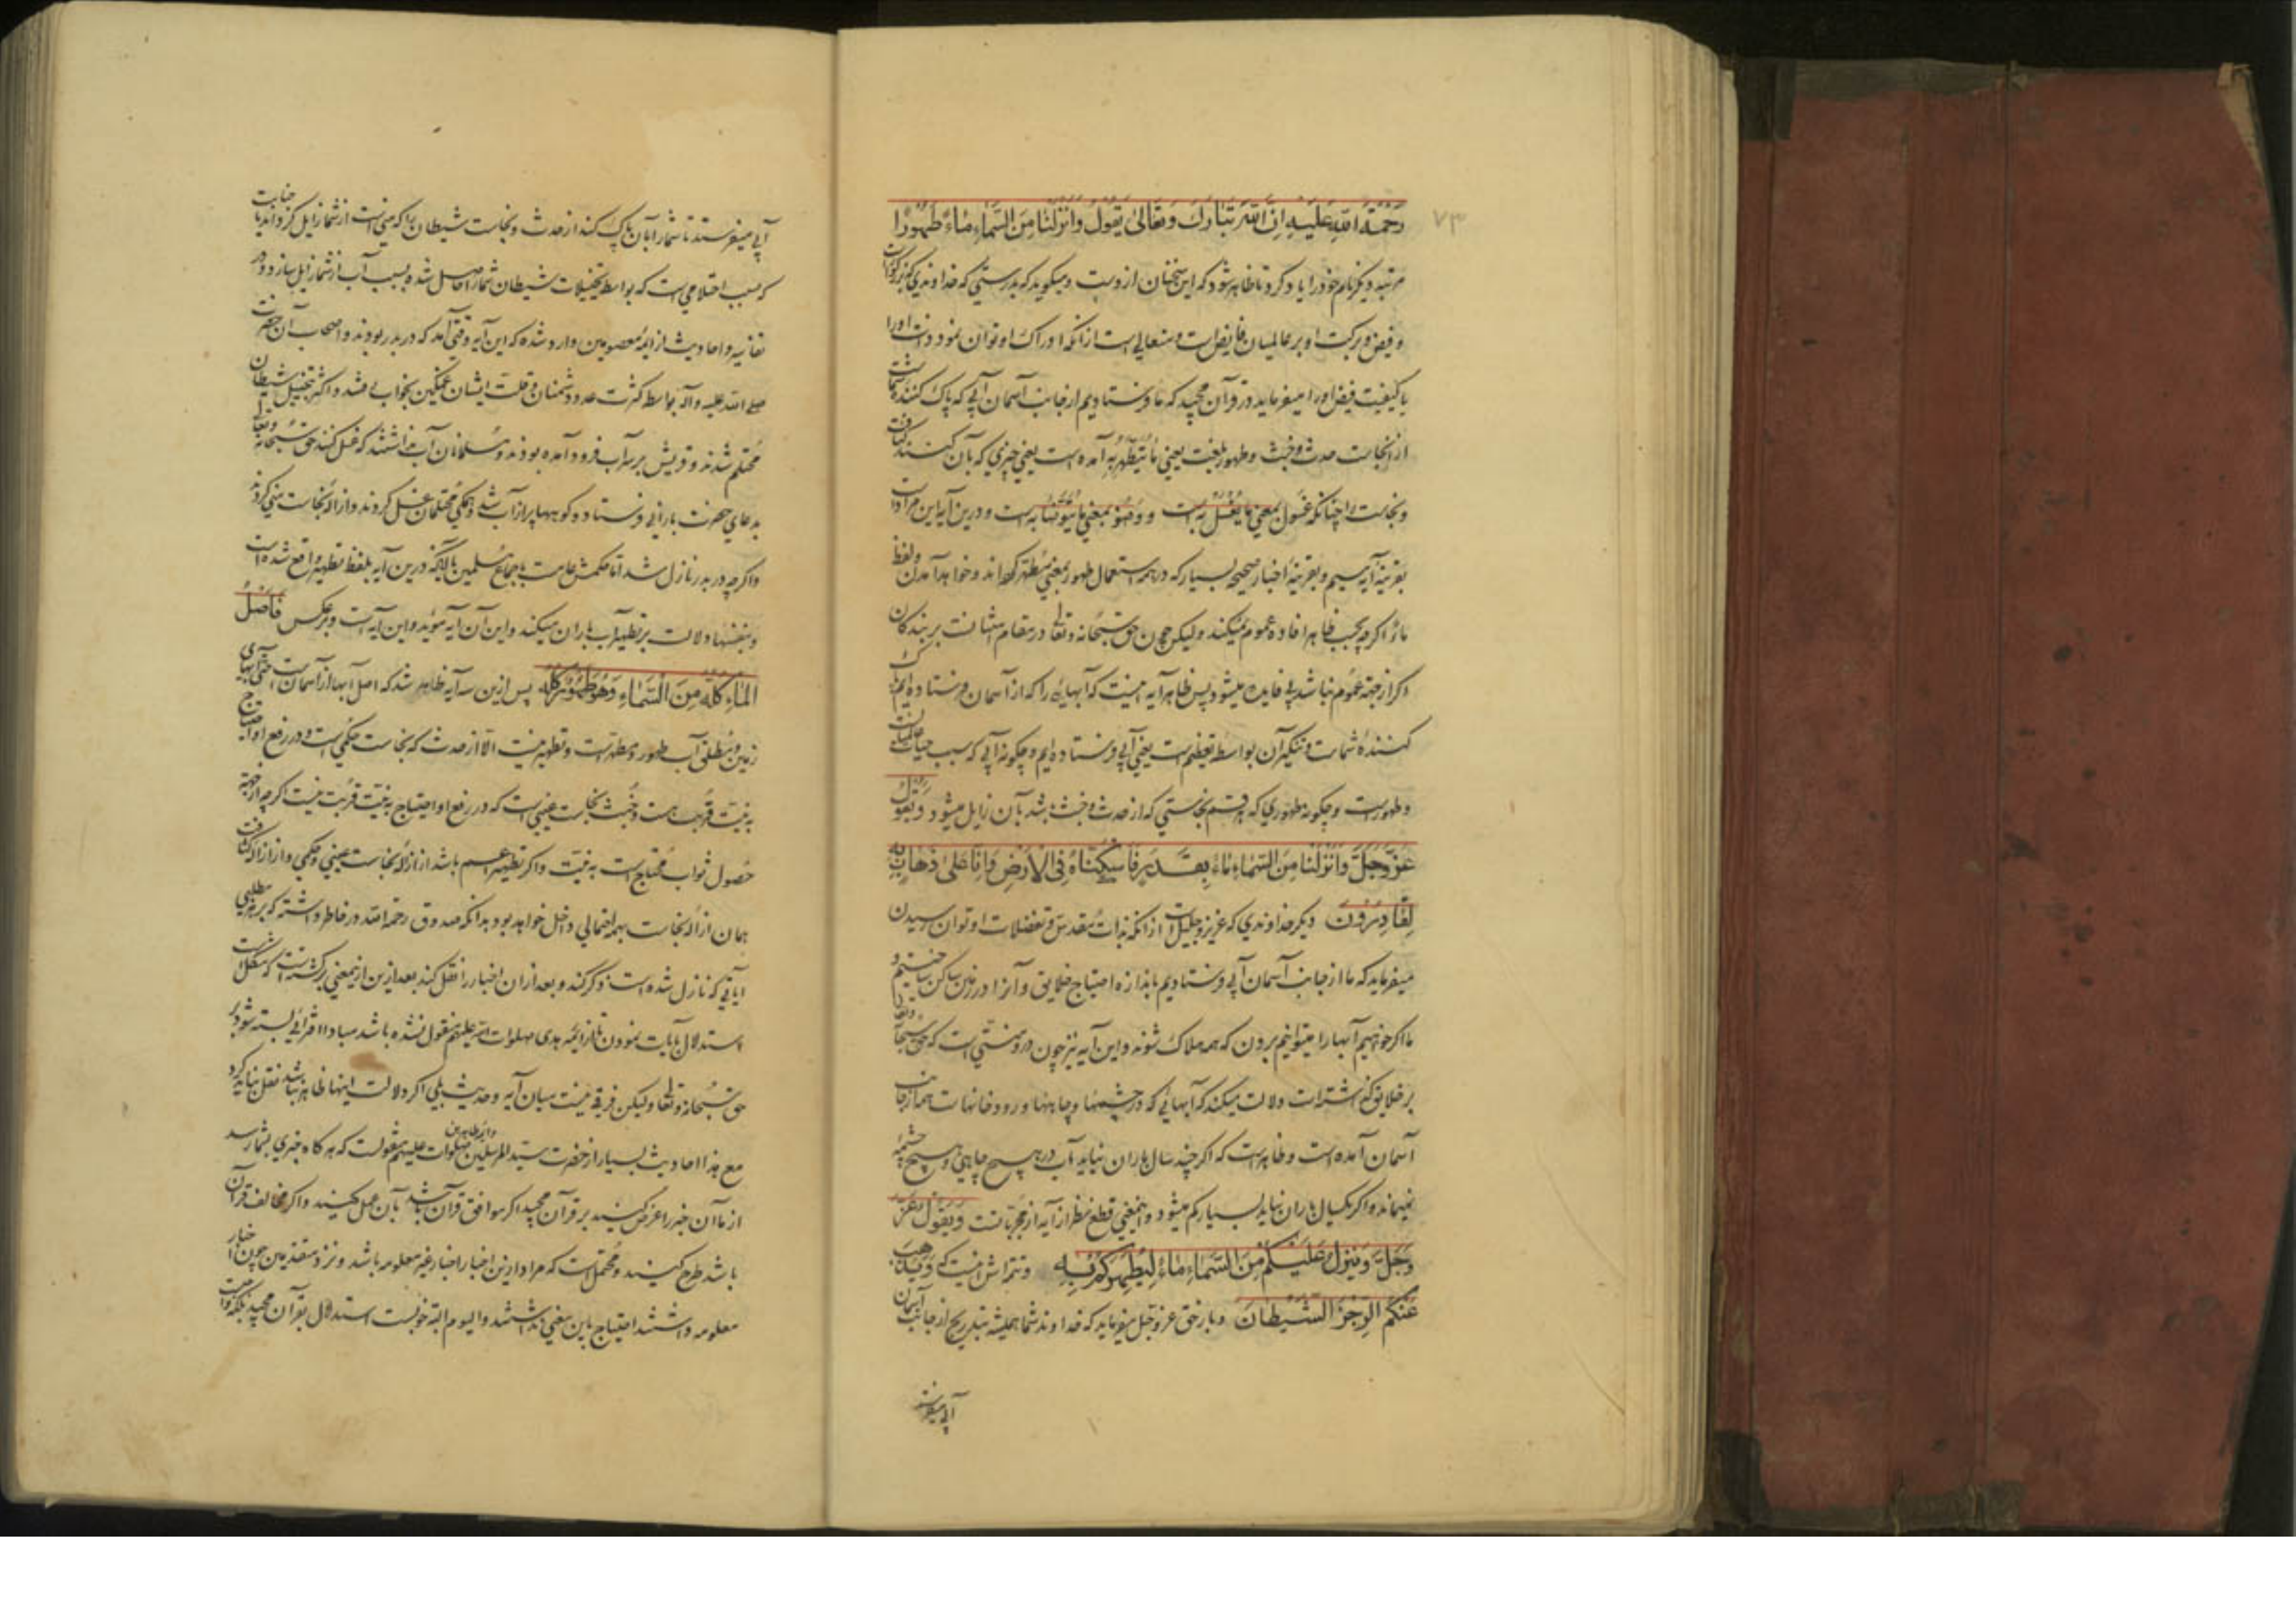 ۷۳
رَحْمَةُ اللهِ عَلَيْهِ اِنَّ اللهَ تَبَارَكَ وَتَعَالیٰ يَقُولُ وَاَنْزَلْنَا مِنَ السَّمَاءِ مَاءً طَهُورًا
مرتبه دیکر نام خود را یاد کرد تا ظاهر شود که این سخنان ازوست و میکوید که بدرستی که خداوندی که بزرکوارست
و فیض و برکت او بر عالمیان فایض است و متعالی است از انکه ادراک او توان نمود و ذات او را
یا کیفیت فیض او را میفرماید در قرآن مجید که ما فرستادیم از جانب آسمان آبی که پاک کننده شماست
از نجاست حدث و خبث و طهور بلغت یعنی مَا یُتَطَهَّرُ بِه آمده است یعنی چیزی که بآن کنند کثافت
و نجاست را چنانکه غسول بمعنی ما یُغْسَلُ به است و وضوء بمعنی ما یُتَوَضَّأُ به است و درین آیه این مرادست
بقرینهٔ آیه تیمم و بقرینهٔ اخبار صحیحه بسیار که در همه استعمال طهور بمعنی مطهر کرده‌اند و خواهد آمدن و لفظ
ماء اکرچه بحسب ظاهر افاده عموم نمیکند ولیکن چون حق سبحانه و تعالی در مقام امتنانست بر بندکان
اکر از جهة عموم نباشد بی فایده میشود پس ظاهر آیه اینست که آبهائی را که از آسمان فرستاده‌ایم پاک
کنندهٔ شماست و تنکیر آن بواسطه تعظیم است یعنی آبی فرستاده ایم و چکونه آبی که سبب حیات عالمیانست
و طهورست و چکونه طهوری که هر قسم نجاستی که از حدث و خبث باشد بآن زایل میشود وَ يَقُولُ
عَزَّوَجَلَّ وَاَنْزَلْنَا مِنَ السَّمَاءِ مَاءً بِقَدَرٍ فَاَسْكَنَّاهُ فِي الْاَرْضِ وَاِنَّا عَلیٰ ذَهَابٍ بِهِ
لَقَادِرُونَ دیکر خداوندی که عزیز و جلیل است از انکه بذات مقدس و تفضلات او توان رسیدن
میفرماید که ما از جانب آسمان آبی فرستادیم باندازه احتیاج خلایق و آنرا در زمین ساکن ساختیم و
ما اکر خواهیم آبها را میتوانیم بردن که همه هلاک شوند و این آیه نیز چون در منتی است که حق سبحانه و تعالی
بر خلایق کذاشته‌است دلالت میکند که آبهائی که در چشمها و چاهها و رودخانهاست همه از جانب
آسمان آمده است و ظاهرست که اکر چند سال باران نیاید آب در هیچ چاهی و هیچ چشمهٔ
نمیماند و اکر یکسال باران نیاید بسیار کم میشود و اینمعنی قطع نظر از آیه از مجرباتست وَ يَقُولُ عَزَّ
وَجَلَّ وَيُنَزِّلُ عَلَيْكُمْ مِنَ السَّمَاءِ مَاءً لِيُطَهِّرَكُمْ بِهِ و تتمه‌اش اینست که وَيُذْهِبَ
عَنْكُمْ الرِّجْزَ الشَّيْطَانَ و باز حق عز و جل میفرماید که خداوند شما همیشه بتدریج از جانب آسمان
آبی میفرستد
آبی میفرستد تا شما را بآن پاک کند از حدث و نجاست شیطان را که منی است از شما زایل کرداند یا جنابت
که سبب احتلامی است که بواسطه تخییلات شیطان شما را حاصل شده بسبب آب از شما زایل سازد و در
تفاسیر و احادیث از ائمه معصومین وارد شده که این آیه وقتی آمد که در بدر بودند و اصحاب آن حضرت
صلی الله علیه و آله بواسطه کثرت عدد دشمنان و قلت ایشان غمکین بخواب رفتند و اکثر بتخییل شیطان
محتلم شدند و قریش بر سر آب فرود آمده بودند و مسلمانان آب نداشتند که غسل کنند حق سبحانه و تعالی
بدعای حضرت بارانی فرستاد و کوبهها پر از آب شد و همکی محتلمان غسل کردند و ازاله نجاست منی کردند
و اکرچه در بدر نازل شد اما حکمش عامست باجماع مسلمین با آنکه درین آیه بلفظ تطهیر واقع شده است
و بنفسها دلالت بر تطهیر آب باران میکند و این آن آیه مؤید و این آیه است و بر عکس فَاَصْلُ
الْمَاءِ كُلِّهِ مِنَ السَّمَاءِ وَهُوَ طَهُورٌ كُلُّهُ پس ازین سه آیه ظاهر شد که اصل آبها از آسمان است حتی آبهای
زمین و مطلق آب طهور و مطهرست و تطهیر نیست الا از حدث که نجاست حکمی است و در رفع او احتیاج
به نیت قربت هست و خبث نجاست عینی است که در رفع او احتیاج به نیت قربت نیست اکرچه از جهة
حصول ثواب محتاج است به نیت و اکر تطهیر اعم باشد از ازاله نجاست عینی و حکمی و از ازاله کثافت
همان ازاله نجاست بهمه احتمالی داخل خواهد بود بدانکه صدوق رحمه الله در خاطر داشته که بر هر مطلبی
آیاتی که نازل شده است ذکر کند و بعد از ان اخبار را نقل کند بعد ازین ازینمعنی برکشته است که مشکلست
استدلال بآیات نمودن تا از ائمه هدی صلوات الله علیهم منقول نشده باشد مبادا افترائی بسته شود بر
حق سبحانه و تعالی ولیکن فرقی نیست میان آیه و حدیث بلی اکر دلالت اینها ظاهر نباشد نقل نباید کرد
مع هذا احادیث بسیار از حضرت سید المرسلین و ائمه طاهرین صلوات علیهم منقولست که هرکاه خبری بشما رسد
از ما آن خبر را عرض کنید بر قرآن مجید اکر موافق قرآن باشد بآن عمل کنید و اکر مخالف قرآن
باشد طرح کنید و محتمل است که مراد ازین اخبار اخبار غیر معلومه باشد و نزد متقدمین چون اخبار
معلومه داشتند احتیاج باین معنی نداشتند و الیوم البته خوبست استدلال بقرآن مجید بلکه واجبست